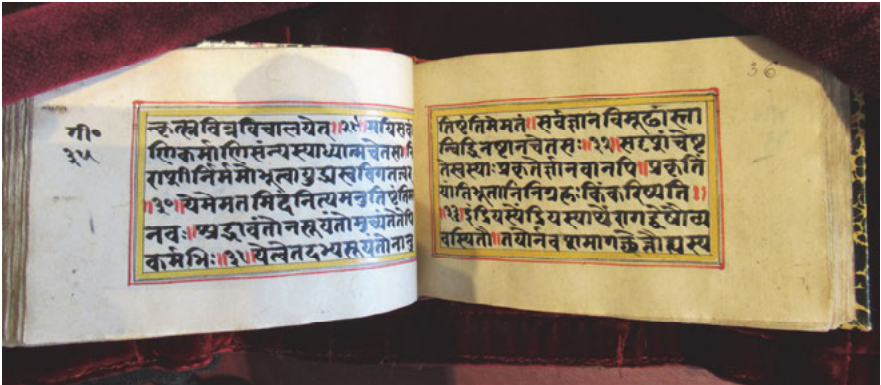 गी०
३५
न्कृत्स्नविन्नविचालयेत्॥२९॥मयिसर्वा
णिकर्माणिसंन्यस्याध्यात्मचेतसा॥नि
राशीर्निर्ममोभूत्वायुद्ध्यस्वविगतज्वरः
॥३०॥येमेमतमिदंनित्यमनुतिष्ठंतिमा
नवः॥श्रद्धावंतोनसूयंतोमुच्यंतेतेपि
कर्मभिः॥३१॥येत्वेतदभ्यसूयंतोनानु
36
तिष्ठंतिमेमतं॥सर्वज्ञानविमूढांस्ता
न्विद्धिनष्टानचेतसः॥३२॥सदृशंचेष्ट
तेस्वस्याःप्रकृतेर्ज्ञानवानपि॥प्रकृतिं
यांतिभूतानिनिग्रहःकिंकरिष्यति॥
॥३३॥इंद्रियस्येंद्रियस्यार्थेरागद्वेषौव्य
वस्थितौ॥तयोर्नवशमागच्छेत्तौह्यस्य